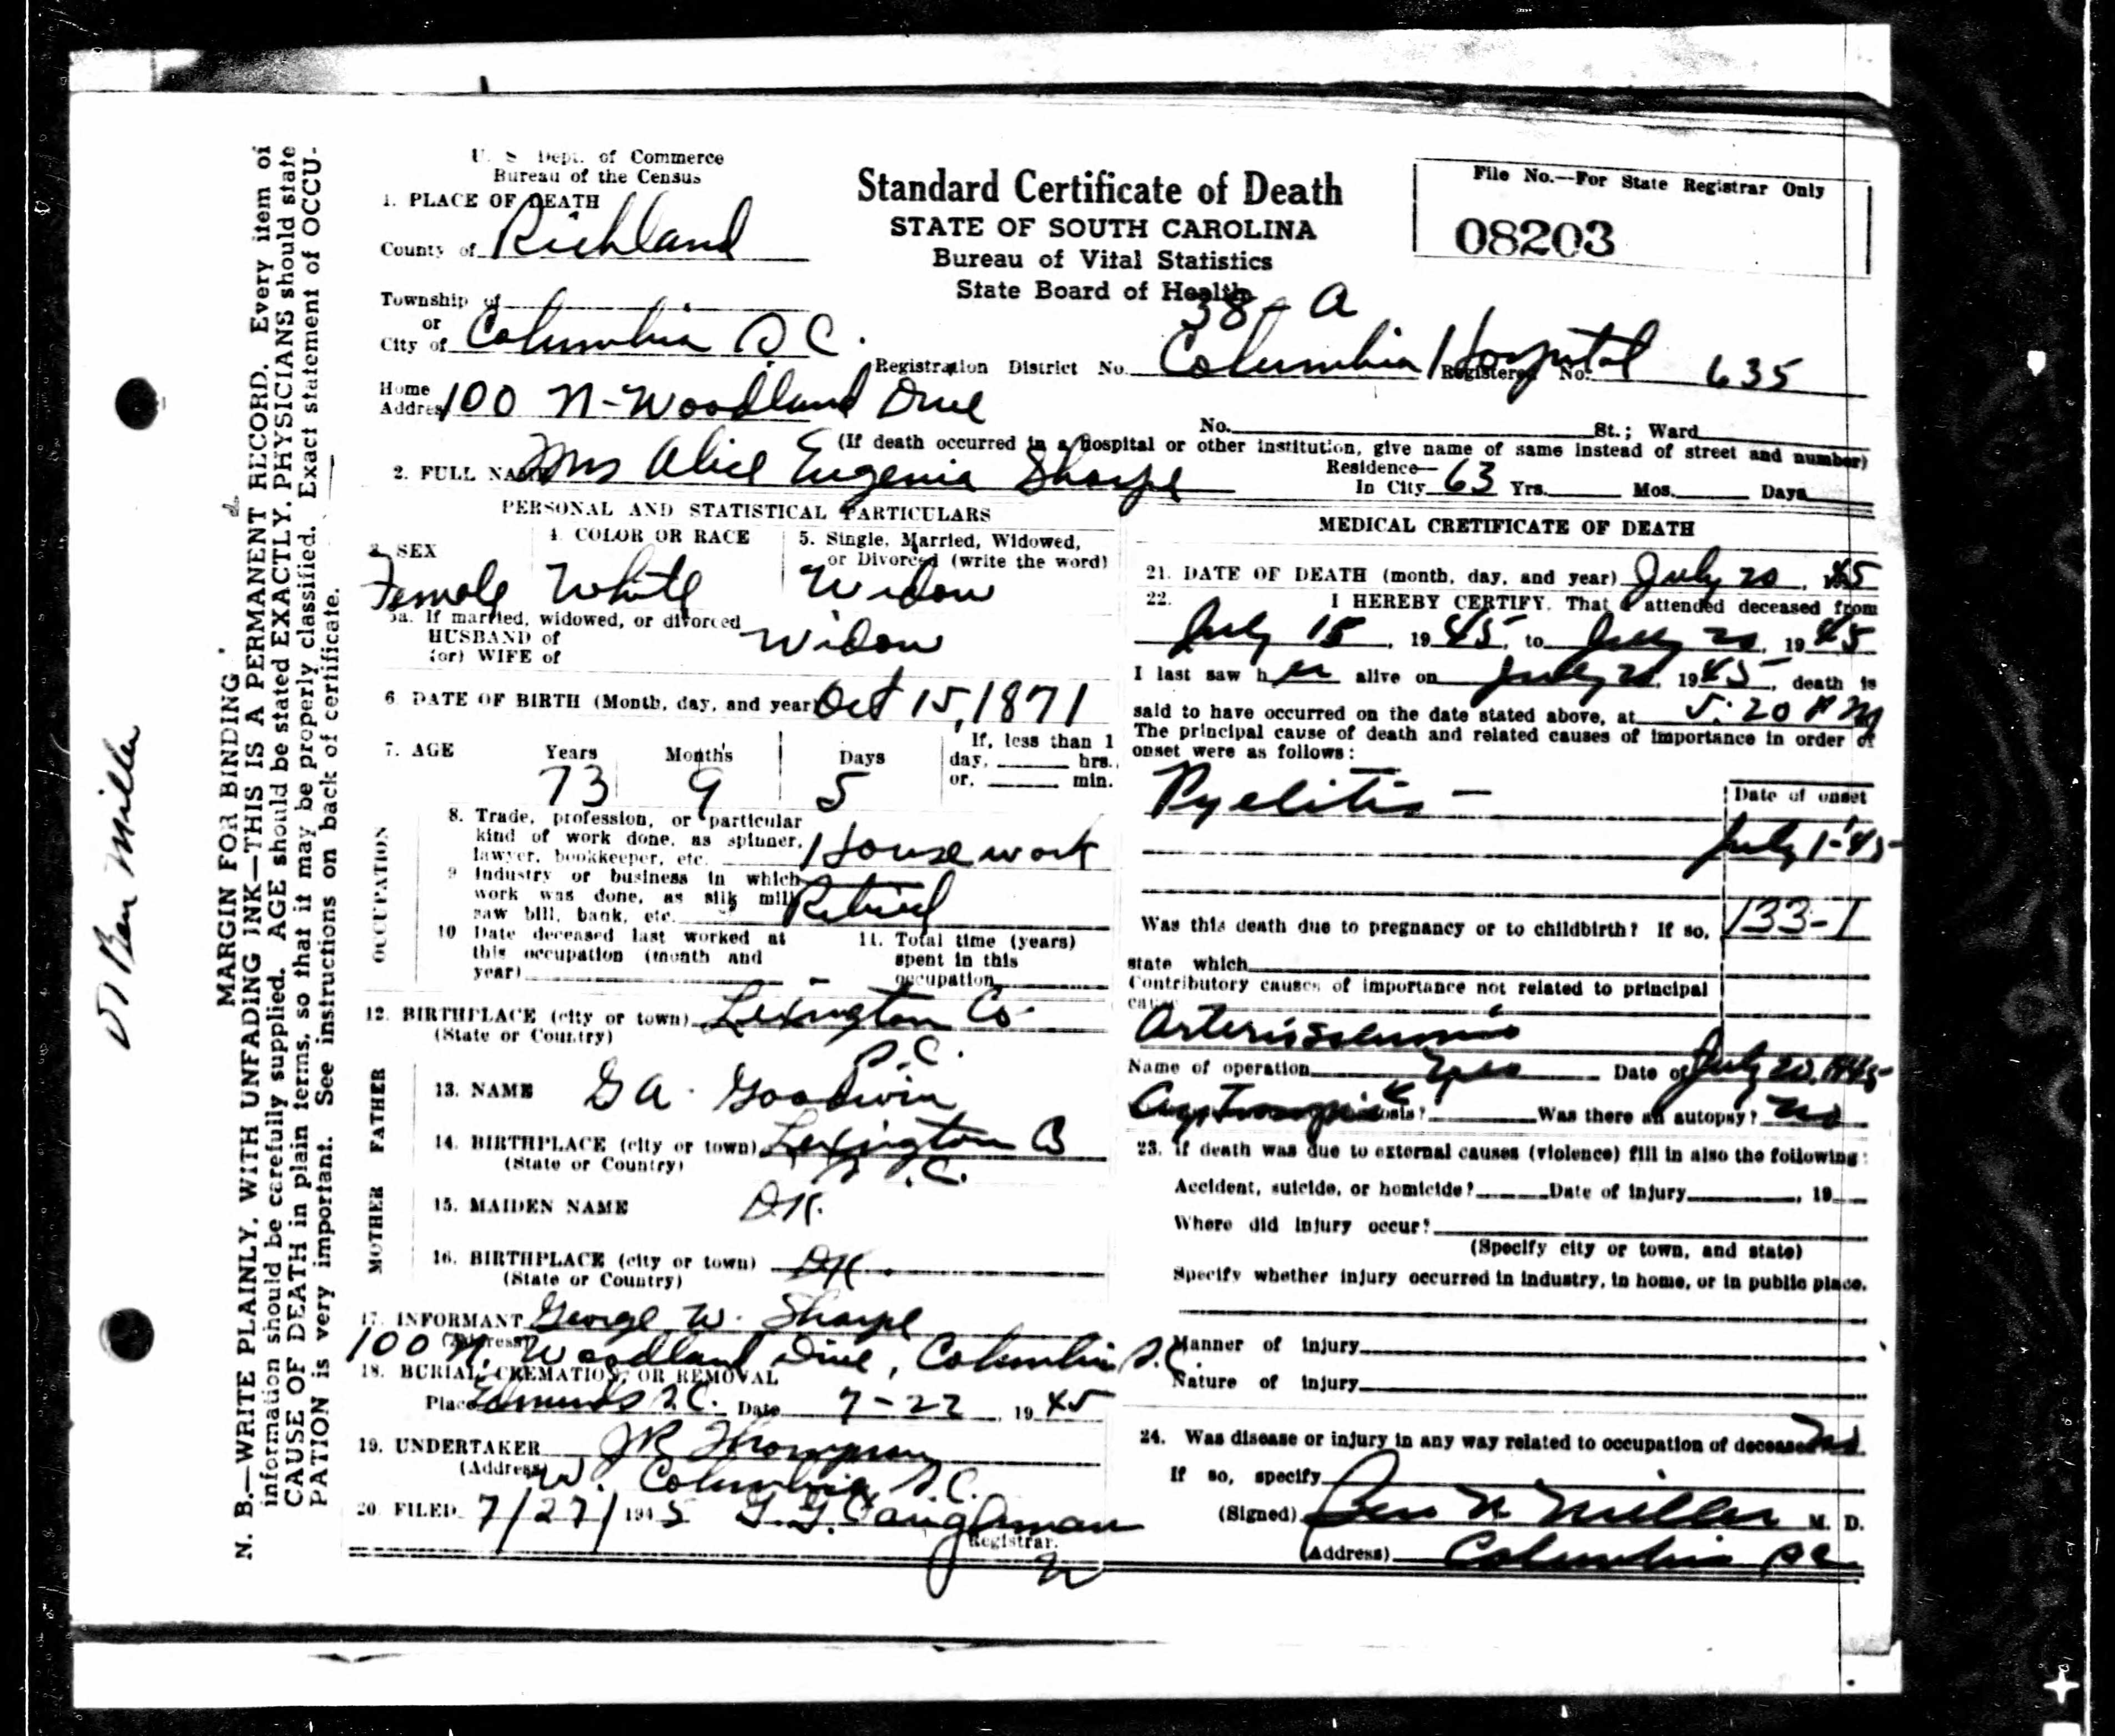 U. S Dept. of Commerce
Bureau of the Census
Standard Certificate of Death
STATE OF SOUTH CAROLINA
Bureau of Vital Statistics
State Board of Health
File No.—For State Registrar Only
08203
1. PLACE OF DEATH
County of Richland
Township of
or
City of Columbia S C.
38-A
Registration District No. Columbia Hospital Registered No. 635
Home
Address 100 N-Woodland Drive
No. St.; Ward
(If death occurred in a hospital or other institution, give name of same instead of street and number)
2. FULL NAME Mrs Alice Eugenia Sharpe
Residence—
In City 63 Yrs. Mos. Days
PERSONAL AND STATISTICAL PARTICULARS
3. SEX
Female
4. COLOR OR RACE
White
5. Single, Married, Widowed,
or Divorced (write the word)
Widow
5a. If married, widowed, or divorced
HUSBAND of
(or) WIFE of
Widow
6. DATE OF BIRTH (Month, day, and year) Oct 15, 1871
7. AGE Years Months Days If, less than 1
day, hrs.,
or, min.
73 9 5
OCCUPATION
8. Trade, profession, or particular
kind of work done, as spinner,
lawyer, bookkeeper, etc. House work
9 Industry or business in which
work was done, as silk mill
saw bill, bank, etc. Retired
10 Date deceased last worked at
this occupation (month and
year)
11. Total time (years)
spent in this
occupation
12. BIRTHPLACE (city or town) Lexington Co
(State or Country) S.C.
FATHER
13. NAME G A. Goodwin
14. BIRTHPLACE (city or town) Lexington Co
(State or Country) S.C.
MOTHER
15. MAIDEN NAME DK.
16. BIRTHPLACE (city or town) DK.
(State or Country)
17. INFORMANT George W. Sharpe
(Address) 100 N. Woodland Drive, Columbia S.C.
18. BURIAL, CREMATION, OR REMOVAL
Place Edmunds S.C. Date 7-22, 1945
19. UNDERTAKER J R Thompson
(Address) W. Columbia S.C.
20. FILED 7/27/1945 G.G. Caughman
Registrar.
MEDICAL CRETIFICATE OF DEATH
21. DATE OF DEATH (month, day, and year) July 20, 45
22. I HEREBY CERTIFY. That I attended deceased from
July 15, 1945, to July 20, 1945
I last saw her alive on July 20, 1945, death is
said to have occurred on the date stated above, at 5:20 P M
The principal cause of death and related causes of importance in order of
onset were as follows:
Pyelitis —
Date of onset
July 1-45
Was this death due to pregnancy or to childbirth? If so, 133-1
state which
Contributory causes of importance not related to principal
cause
Name of operation yes Date of July 20, 1945
Was there an autopsy? no
23. If death was due to external causes (violence) fill in also the following:
Accident, suicide, or homicide? Date of injury, 19
Where did injury occur?
(Specify city or town, and state)
Specify whether injury occurred in industry, in home, or in public place.
Manner of injury
Nature of injury
24. Was disease or injury in any way related to occupation of deceased no
If so, specify
(Signed) Ben N Miller M. D.
(Address) Columbia S C
MARGIN FOR BINDING
N. B.—WRITE PLAINLY, WITH UNFADING INK—THIS IS A PERMANENT RECORD. Every item of
information should be carefully supplied. AGE should be stated EXACTLY. PHYSICIANS should state
CAUSE OF DEATH in plain terms, so that it may be properly classified. Exact statement of OCCU-
PATION is very important. See instructions on back of certificate.
Dr Ben Miller